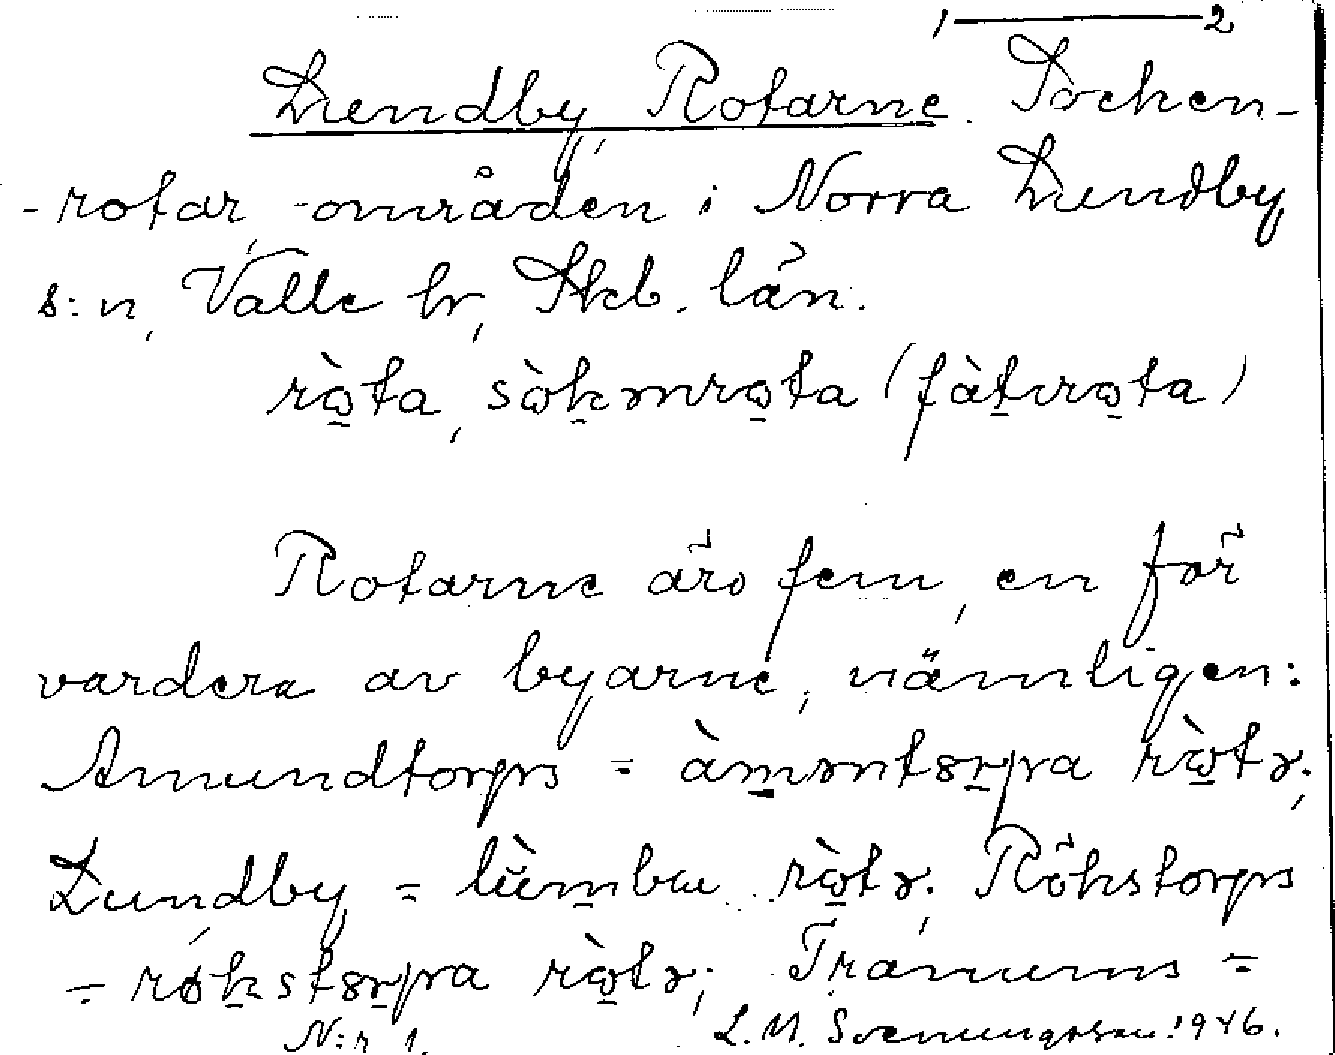 1 — 2
Lundby Rotarne. Socken-
-rotar, -områden i Norra Lundby
s:n, Valle hr, Skb. län.
ròta, sòkənrota (fàtırota)
Rotarne äro fem, en för
vardera av byarne, nämligen:
Amundtorps = àməntorpa ròtə;
Lundby = lùmbu ròtə; Rökstorps
= rökstorpa ròtə; Tranums =
N:r 1. L. M. Svenungsson 1946.